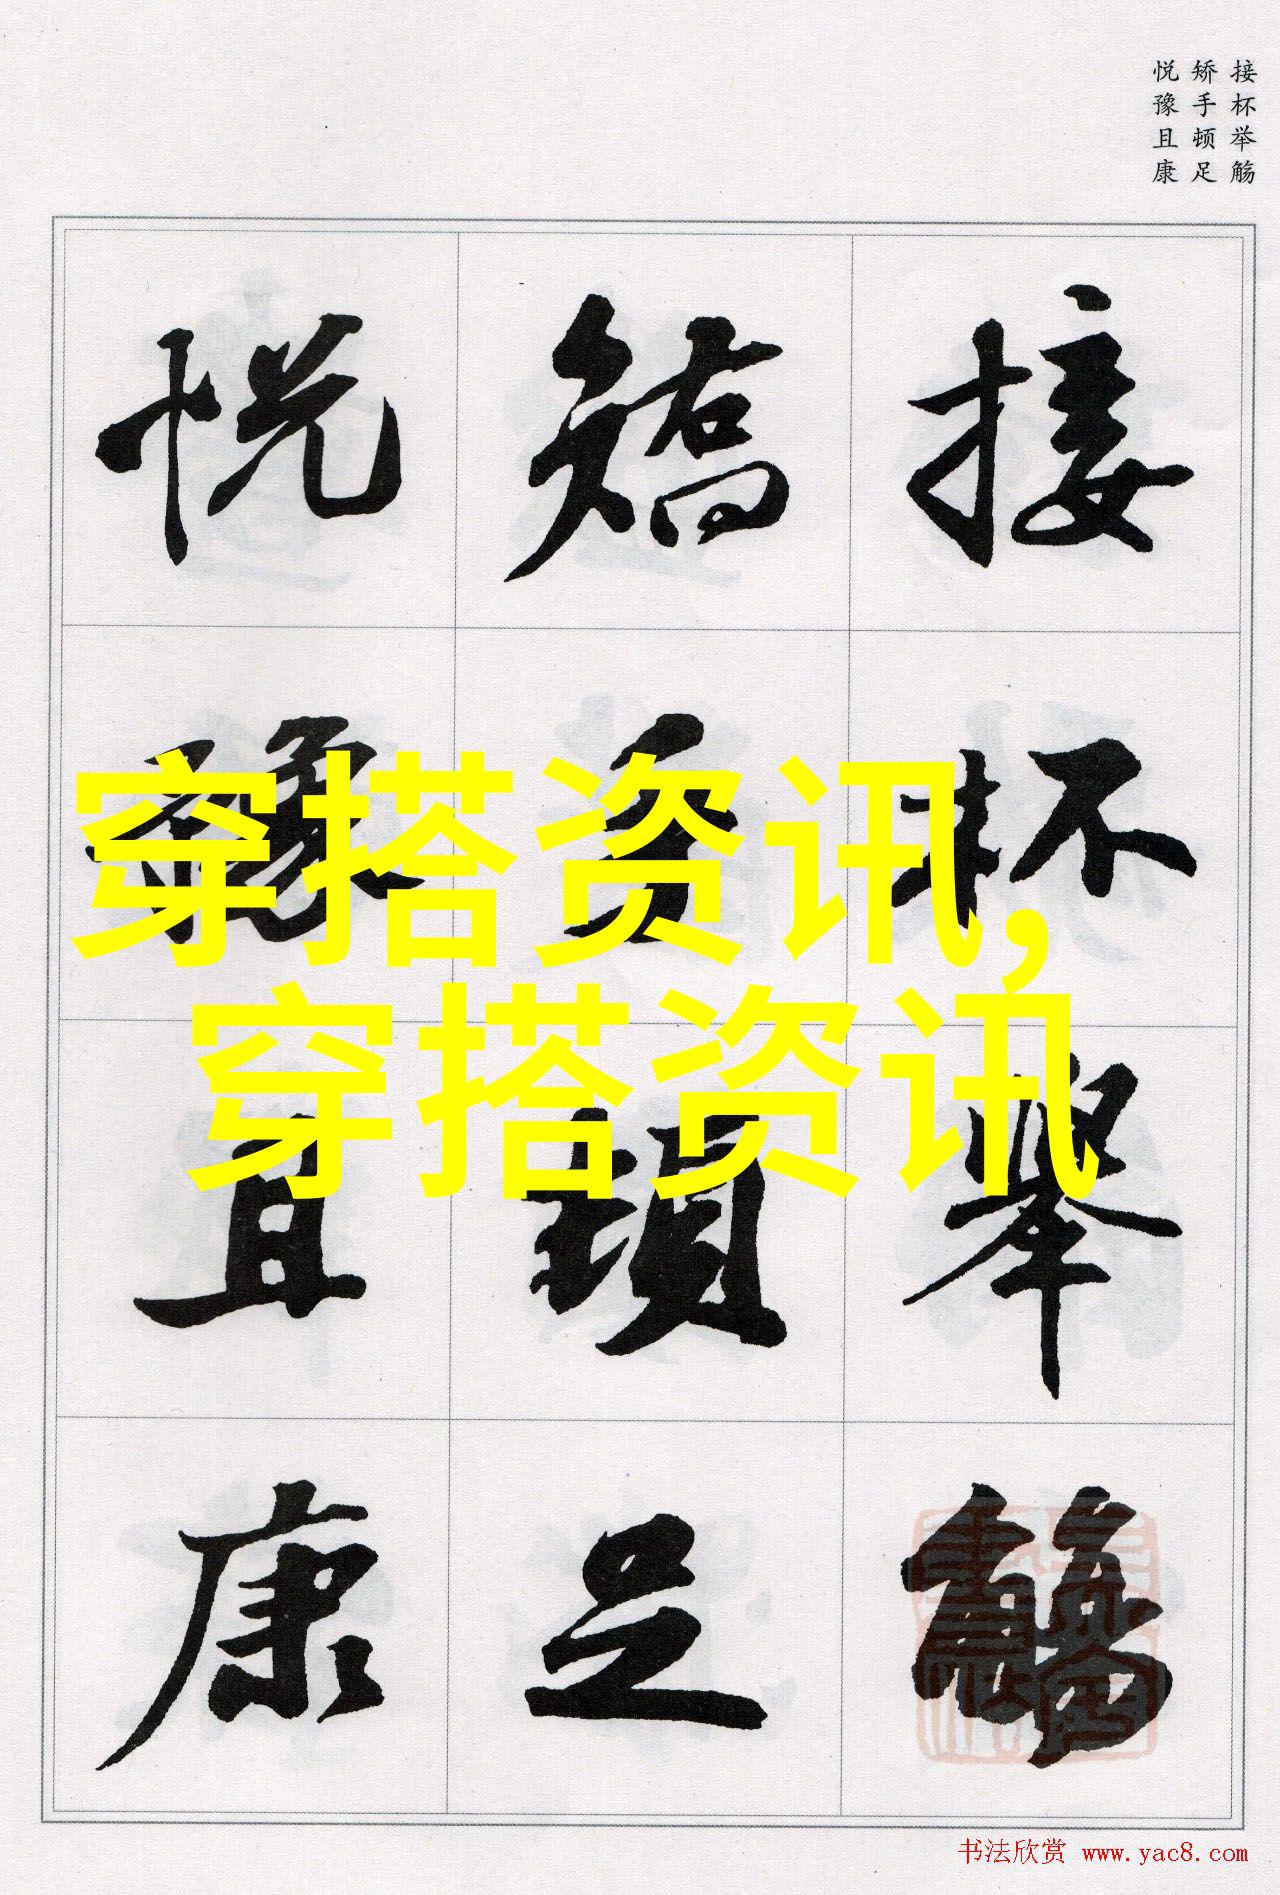 接杯举觞
矫手顿足
悦豫且康
接杯舉觴
矯手頓足
悦豫且康
穿搭资讯,
穿搭资讯
书法欣赏 www.yac8.com